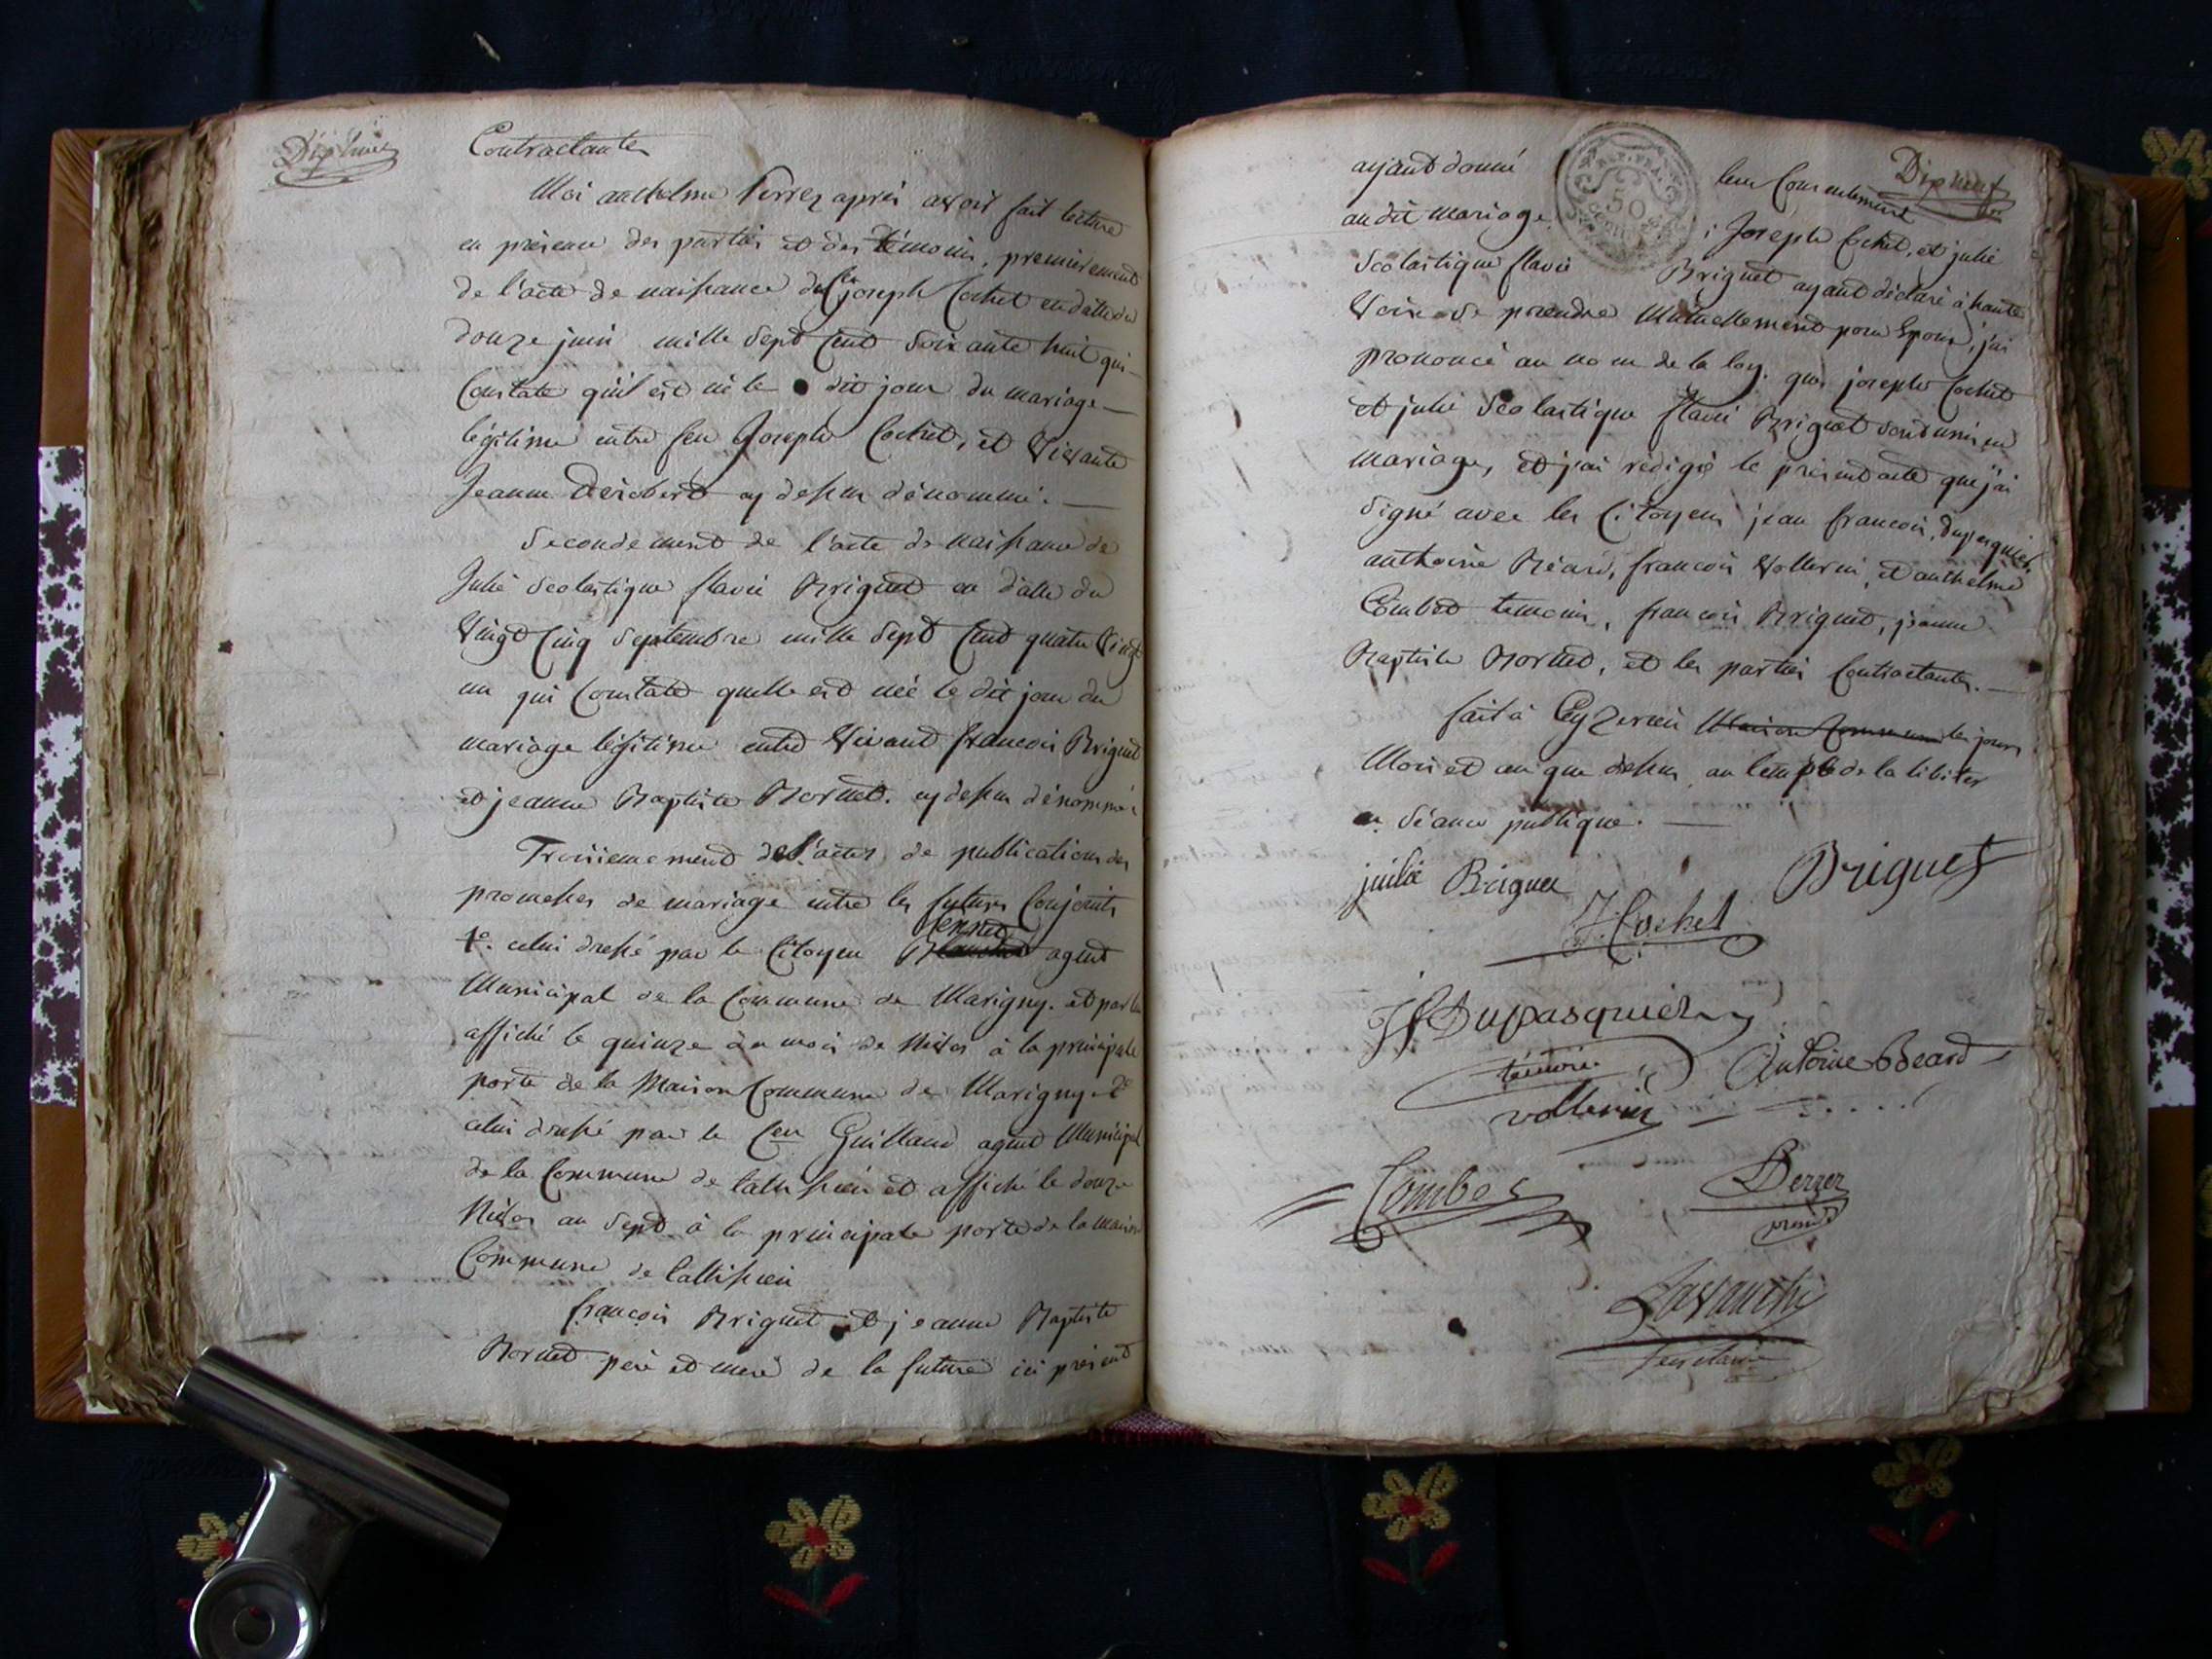 Contractantes
Moi anthelme Perrez aprés avoir fait lecture
en présence des parties et des témoins, premierement
de l'acte de naissance du Cen joseph Cochet en datte du
douze juin mille Sept Cent Soixante huit qui
Constate qu'il est né le dit jour du mariage
légitime entre feu Joseph Cochet, et Vivante
Jeanne cy dessus dénommé.
Secondement de l'acte de naissance de
Julie Scolastique flavie Briguet en datte du
Vingt Cinq Septembre mille Sept Cent quatre Vingt
un qui Constate quelle est née le dit jour du
mariage légitime entre Vivant françois Briguet
et jeanne Baptiste Bornet. cy dessus dénommé
Troisiemement de l'actes de publications des
promesses de mariage entre les futurs Conjoints
1º. celui dressé par le Citoyen agent
Municipal de la Commune de Marigny. et par lui
affiché le quinze du mois de Nivos à la principale
porte de la Maison Commune de Marigny. 2º
celui dressé par le Cen Guilland agent Municipal
de la Commune de et affiché le douze
Nivos an Sept à la principale porte de la maison
Commune de
françois Briguet et jeanne Baptiste
Bornet pere et mere de la future ici présent
ayant donné leur Consentement
au dit mariage
REP. FRA.
50
CENT
; Joseph Cochet, et julie
Scolastique flavie Briguet ayant déclaré à haute
Voix Se prendre Mutuellement pour Epoux, j'ai
prononcé au nom de la loy. que joseph Cochet
et julie Scolastique flavie Briguet sont unis en
mariage, et j'ai rédigé le présent acte que j'ai
Signé avec les Citoyens jean francois, dupasquier
anthoine Béard, francois Vollerin, et anthelme
Combet temoins, francois Briguet, jeanne
Baptiste Bornet, et les parties Contractantes.
fait à Ceyzerieu Maison Commune les jours
Mois et an que dessus au temple de la libiter
en Séance publique.
Briguet
J. Cochet
JfDupasquier
témoin
Antoine Béard
vollerin
Combet
Perrez
présid
Lavanchi
Secretaire